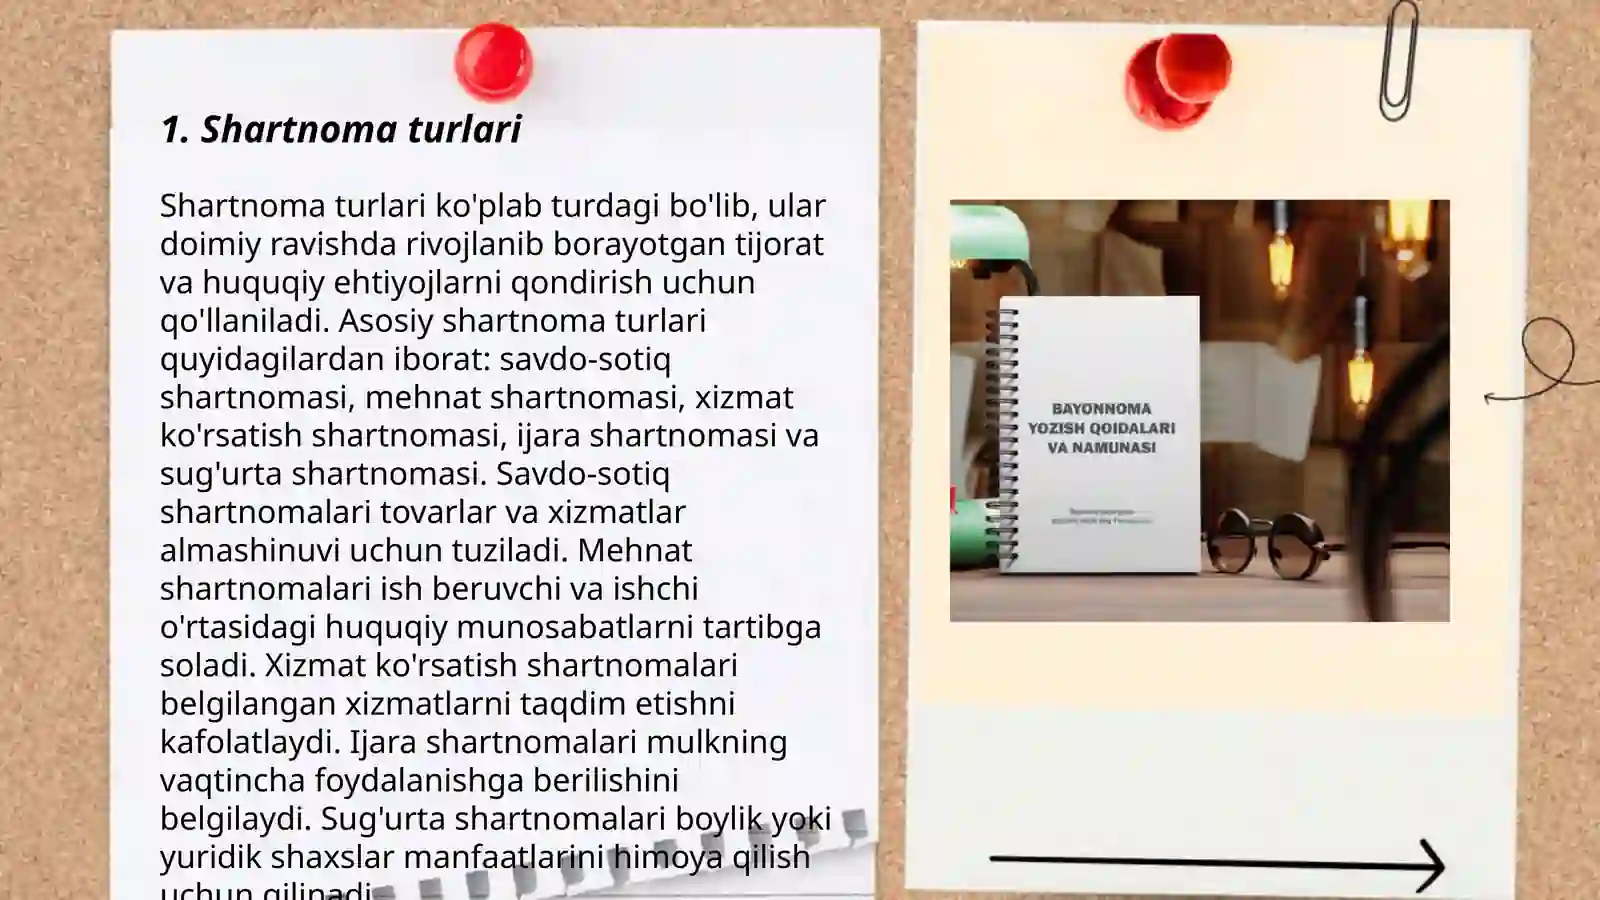 1. Shartnoma turlari
Shartnoma turlari ko'plab turdagi bo'lib, ular
doimiy ravishda rivojlanib borayotgan tijorat
va huquqiy ehtiyojlarni qondirish uchun
qo'llaniladi. Asosiy shartnoma turlari
quyidagilardan iborat: savdo-sotiq
shartnomasi, mehnat shartnomasi, xizmat
ko'rsatish shartnomasi, ijara shartnomasi va
sug'urta shartnomasi. Savdo-sotiq
shartnomalari tovarlar va xizmatlar
almashinuvi uchun tuziladi. Mehnat
shartnomalari ish beruvchi va ishchi
o'rtasidagi huquqiy munosabatlarni tartibga
soladi. Xizmat ko'rsatish shartnomalari
belgilangan xizmatlarni taqdim etishni
kafolatlaydi. Ijara shartnomalari mulkning
vaqtincha foydalanishga berilishini
belgilaydi. Sug'urta shartnomalari boylik yoki
yuridik shaxslar manfaatlarini himoya qilish
uchun qilinadi.
BAYONNOMA
YOZISH QOIDALARI
VA NAMUNASI